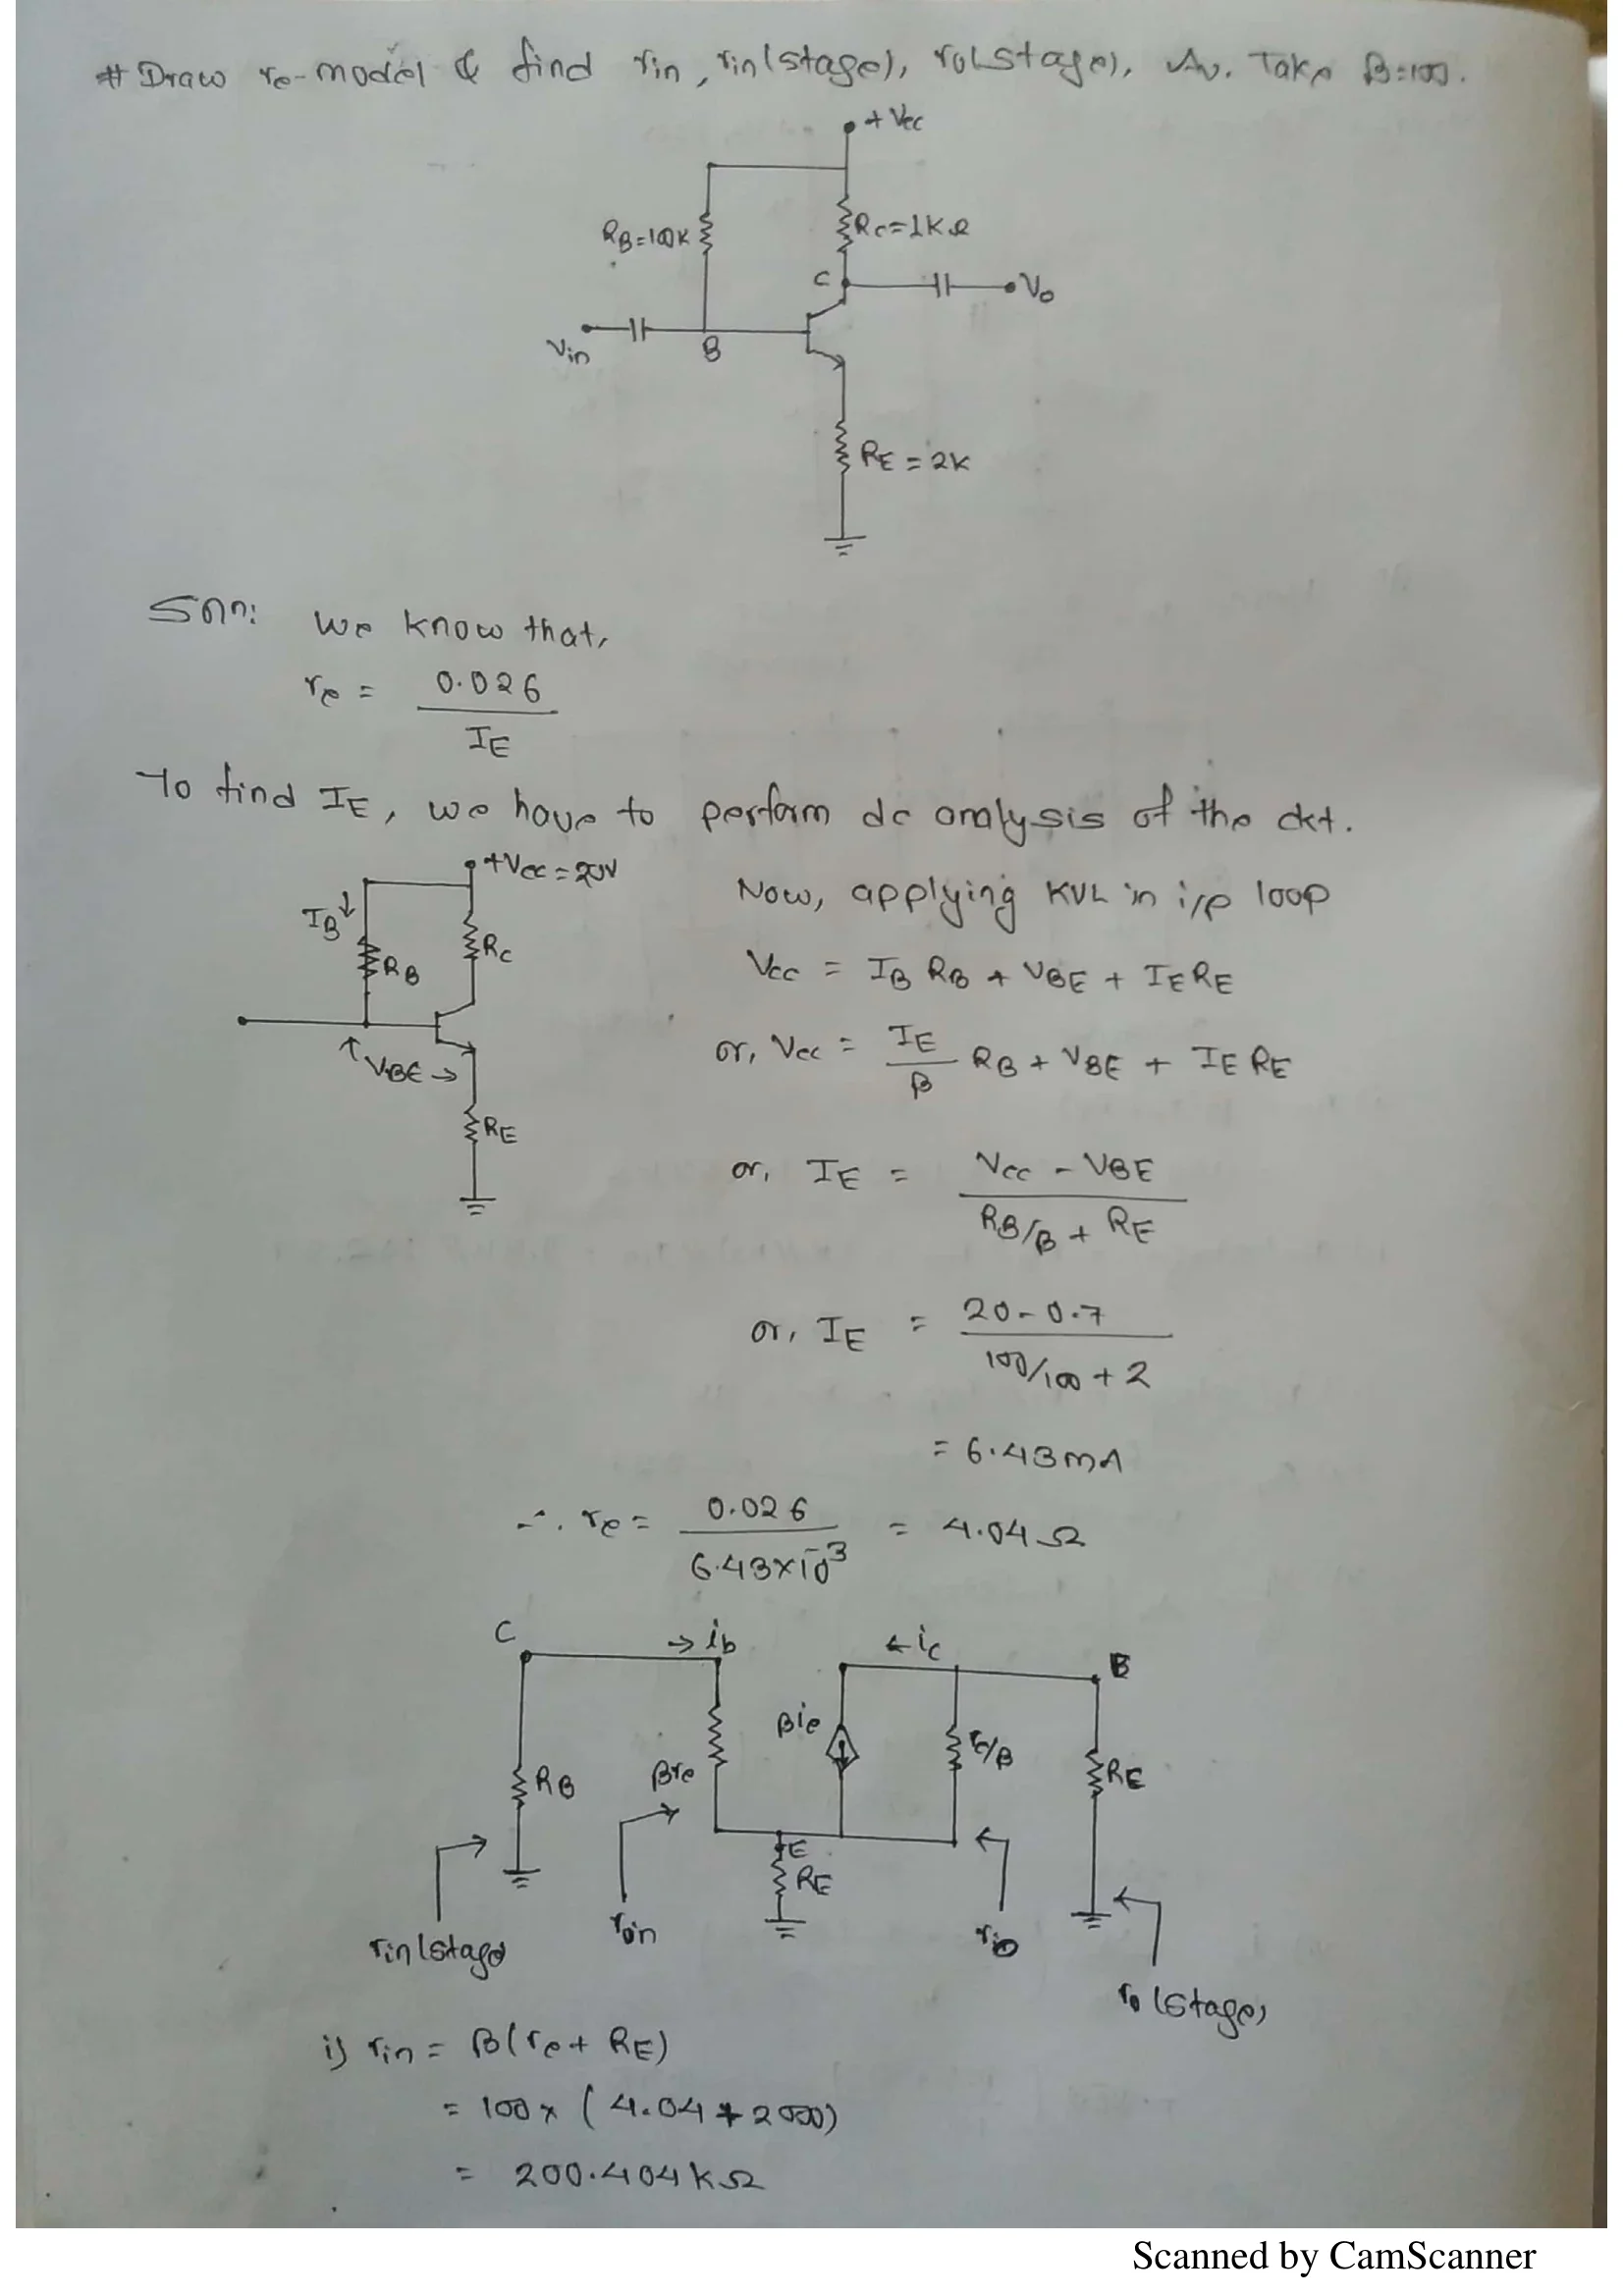 # Draw re-model & find rin, rin(stage), ro(stage), Av. Take β=100.
+Vcc
RB=100K
RC=1KΩ
C
Vo
Vin
B
RE=2K
Soln: We know that,
re = 0.026
IE
To find IE, we have to perform dc analysis of the ckt.
+Vcc=20V
IB↓
RB
RC
↑VBE→
RE
Now, applying KVL in i/p loop
Vcc = IB RB + VBE + IE RE
or, Vcc = IE/β RB + VBE + IE RE
or, IE = Vcc - VBE
RB/β + RE
or, IE = 20-0.7
100/100 + 2
= 6.43mA
∴ re = 0.026 = 4.04Ω
6.43×10⁻³
C
→ib
←ic
B
RB
βre
βie
rc/β
RE
E
RE
rin(stage)
rin
ro
ro(stage)
i) rin = β(re + RE)
= 100 × (4.04 + 2000)
= 200.404KΩ
Scanned by CamScanner